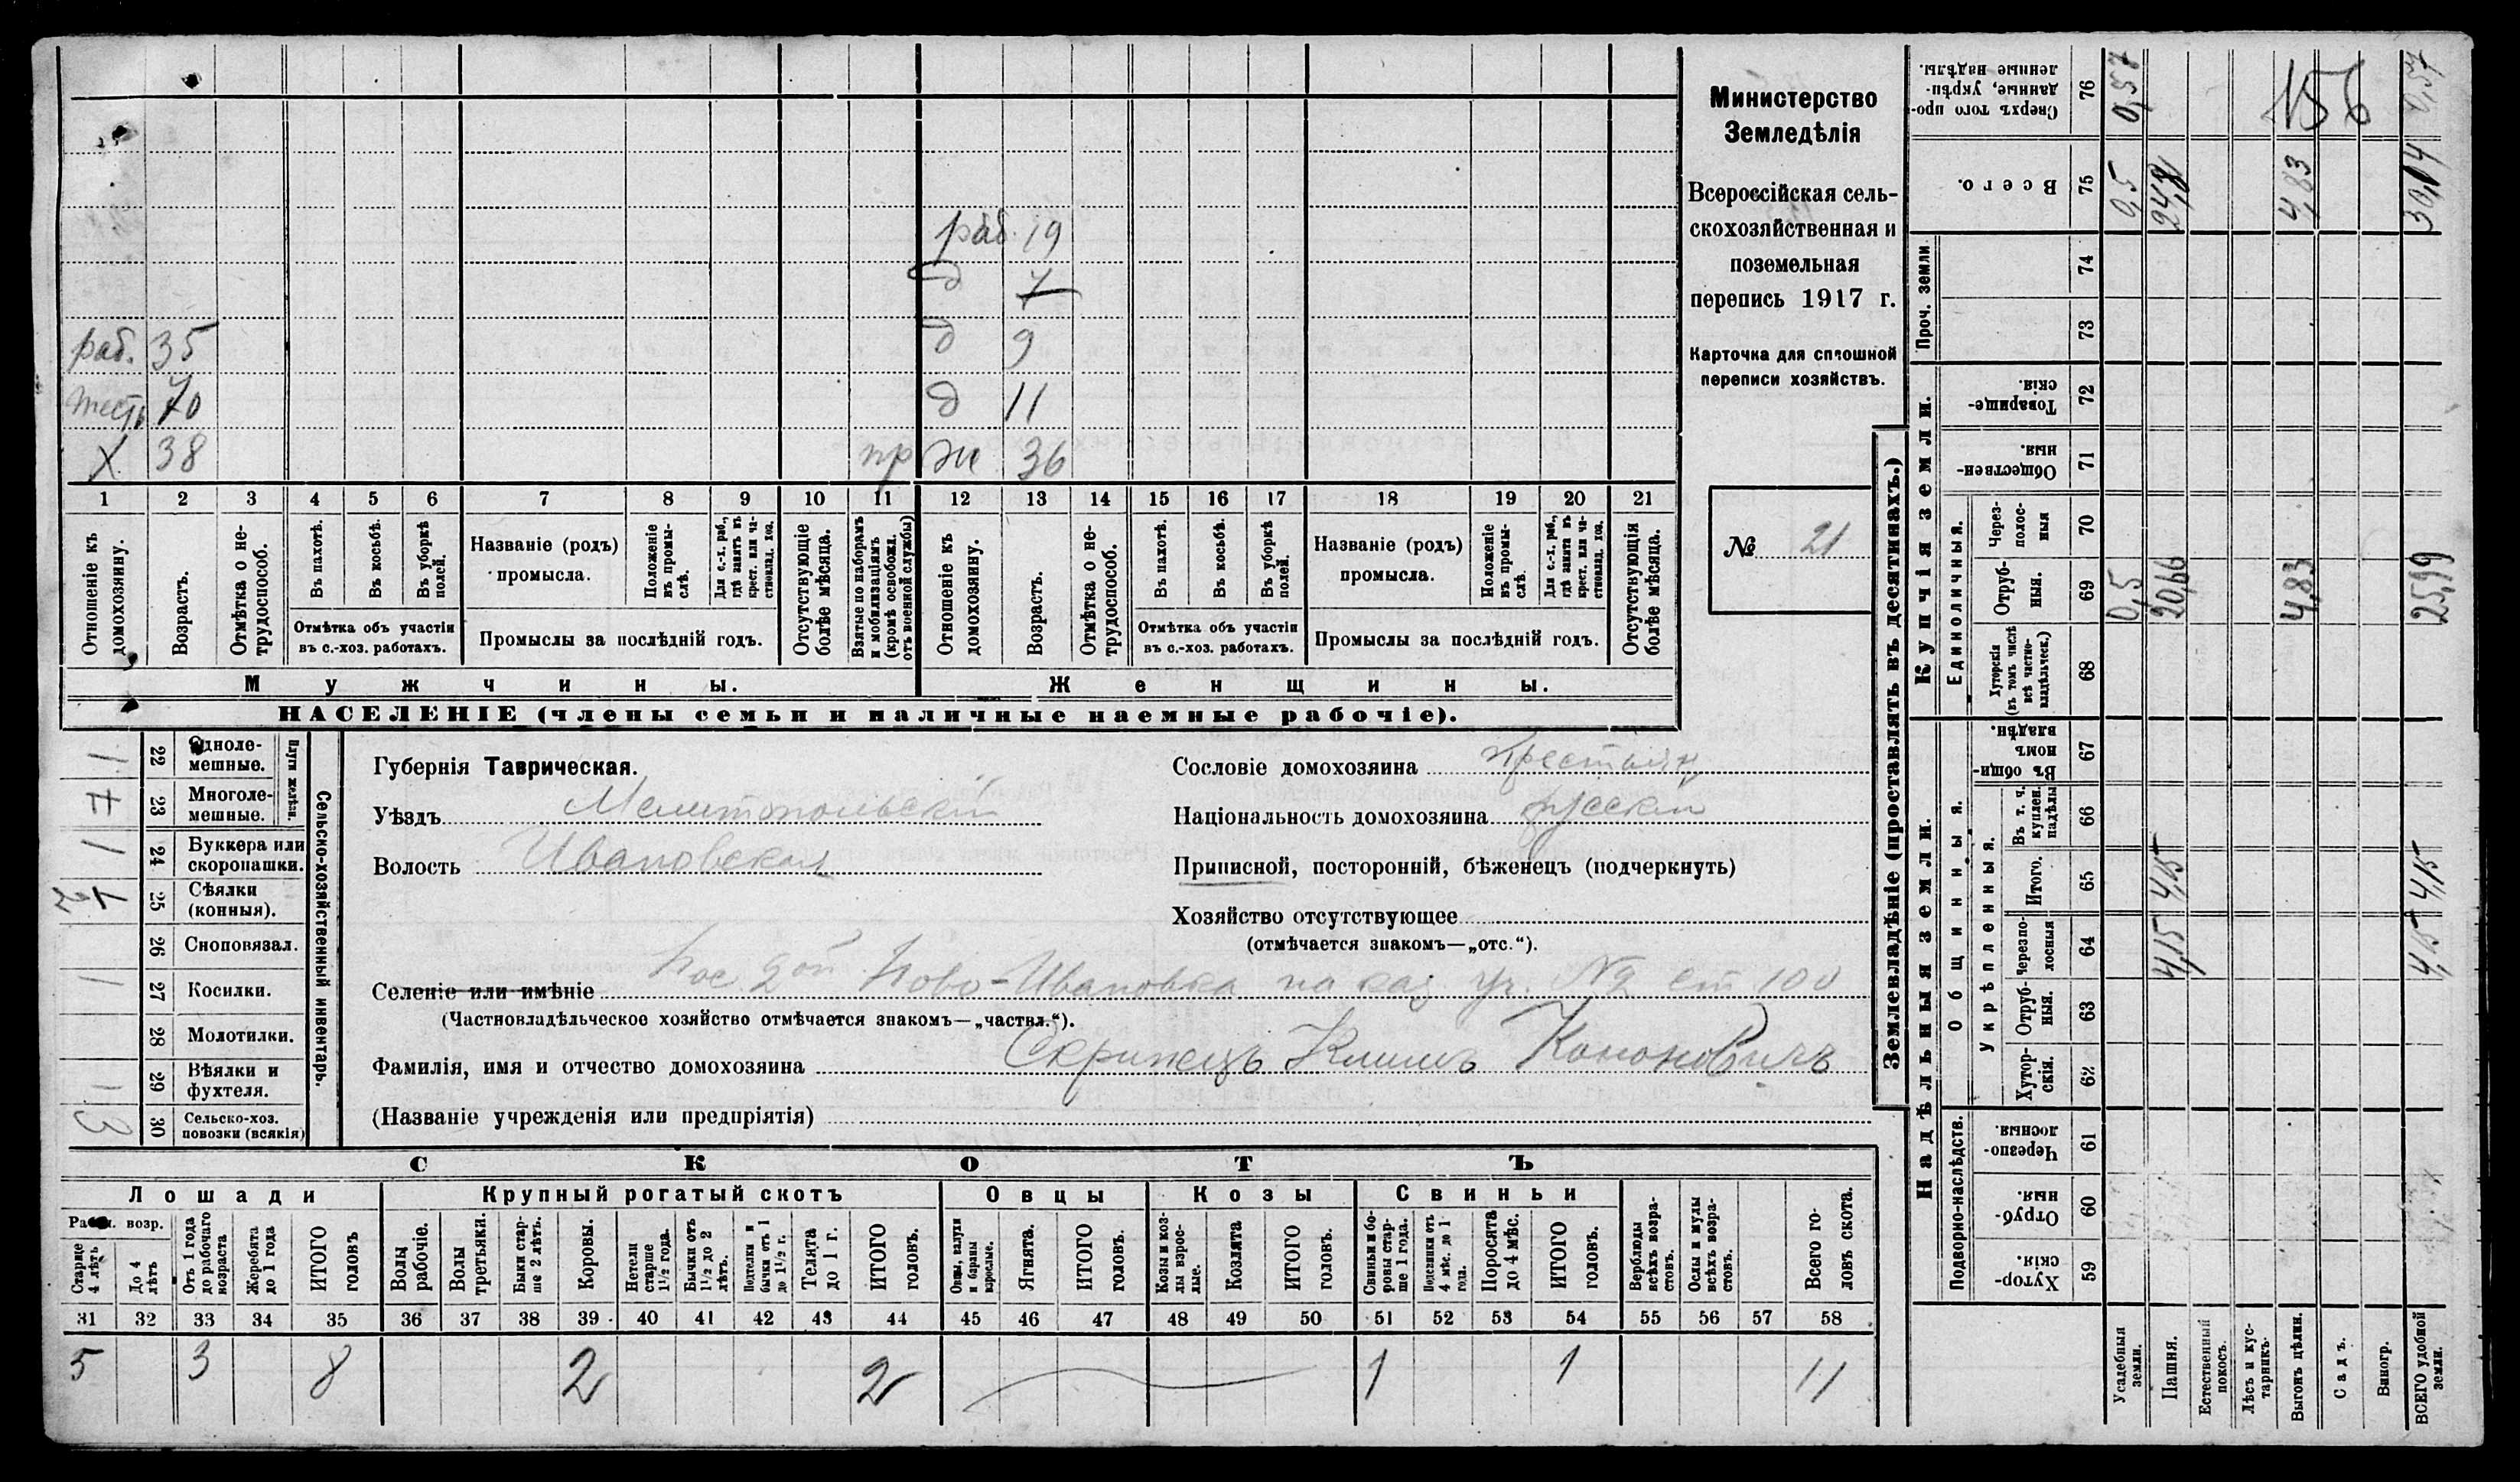 Министерство
Земледѣлія
Всероссійская сель-
скохозяйственная и
поземельная
перепись 1917 г.
Карточка для сплошной
переписи хозяйствъ.
№ 21
раб. 35
тесть 70
X 38
раб. 19
д 7
д 9
д 11
пр жн 36
1 2 3 4 5 6 7 8 9 10 11 12 13 14 15 16 17 18 19 20 21
Отношеніе къ домохозяину.
Возрастъ.
Отмѣтка о не-трудоспособ.
Въ пахотѣ.
Въ косьбѣ.
Въ уборкѣ полей.
Отмѣтка объ участіи
въ с.-хоз. работахъ.
Названіе (родъ)
промысла.
Положеніе въ промы-слѣ.
Для с.-х. раб., гдѣ занятъ въ крест. или ча-стновлад. хоз.
Промыслы за послѣдній годъ.
Отсутствующіе болѣе мѣсяца.
Взятые по наборамъ и мобилизаціямъ (кромѣ освобожд. отъ военной службы)
Отношеніе къ домохозяину.
Возрастъ.
Отмѣтка о не-трудоспособ.
Въ пахотѣ.
Въ косьбѣ.
Въ уборкѣ полей.
Отмѣтка объ участіи
въ с.-хоз. работахъ.
Названіе (родъ)
промысла.
Положеніе въ промы-слѣ.
Для с.-х. раб., гдѣ занята въ крест. или ча-стновлад. хоз.
Промыслы за послѣдній годъ.
Отсутствующія болѣе мѣсяца.
Мужчины.
Женщины.
НАСЕЛЕНІЕ (члены семьи и наличные наемные рабочіе).
Сельско-хозяйственный инвентарь.
Плуги желѣзн.
1 22 Одноле-мешные.
23 Многоле-мешные.
1 24 Буккера или скоропашки.
25 Сѣялки (конныя).
26 Сноповязал.
1 27 Косилки.
28 Молотилки.
1 29 Вѣялки и фухтеля.
3 30 Сельско-хоз. повозки (всякія)
Губернія Таврическая.
Уѣздъ Мелитопольскій
Волость Ивановская
Сословіе домохозяина крестьян
Національность домохозяина русскій
Приписной, посторонній, бѣженецъ (подчеркнуть)
Хозяйство отсутствующее
(отмѣчается знакомъ—„отс.“).
Селеніе или имѣніе пос 2ой Ново-Ивановка на каз. уч. №2 ст 100
(Частновладѣльческое хозяйство отмѣчается знакомъ—„частвл.“).
Фамилія, имя и отчество домохозяина Скрипецъ Климъ Кононовичъ
(Названіе учрежденія или предпріятія)
СКОТЪ
Лошади
Рабоч. возр.
Старше 4 лѣтъ
До 4 лѣтъ
Отъ 1 года до рабочаго возраста
Жеребята до 1 года
ИТОГО головъ
Крупный рогатый скотъ
Волы рабочіе.
Волы третьяки.
Быки стар-ше 2 лѣтъ.
Коровы.
Нетели старше 1½ года.
Бычки отъ 1½ до 2 лѣтъ.
Подтелки и бычки отъ 1 до 1½ г.
Телята до 1 г.
ИТОГО головъ.
Овцы
Овцы, валухи и бараны взрослые.
Ягнята.
ИТОГО головъ.
Козы
Козы и коз-лы взрос-лые.
Козлята
ИТОГО головъ.
Свиньи
Свиньи и бо-ровы стар-ше 1 года.
Подсвинки отъ 4 мѣс. до 1 года.
Поросята до 4 мѣс.
ИТОГО головъ.
Верблюды всѣхъ возра-стовъ.
Ослы и мулы всѣхъ возра-стовъ.
Всего го-ловъ скота.
31 32 33 34 35 36 37 38 39 40 41 42 43 44 45 46 47 48 49 50 51 52 53 54 55 56 57 58
5 3 8 2 2 1 1 11
Землевладѣніе (проставлять въ десятинахъ.)
Купчія земли.
Надѣльныя земли.
Сверхъ того про-данные, укрѣп-ленные надѣлы. 76 0,57 0,57
156
Всего. 75 0,5 24,81 4,83 30,14
Проч. земли
74
73
Товарище-скія. 72
Обществен-ныя. 71
Единоличныя.
Через-полос-ныя 70
Отруб-ныя. 69 0,5 20,66 4,83 25,99
Хуторскія (въ томъ числѣ всѣ частно-владѣльческ.) 68
Общинныя.
Въ общин-номъ владѣн. 67
Укрѣпленныя.
Въ т. ч. куплен. надѣлы 66
Итого. 65 4,15 4,15
Черезпо-лосныя 64 4,15 4,15
Отруб-ныя. 63
Хутор-скія. 62
Подворно-наслѣдств.
Черезпо-лосныя. 61
Отруб-ныя. 60
Хутор-скія. 59
Усадебныя земли.
Пашня.
Естественный покосъ.
Лѣсъ и кус-тарникъ.
Выгонъ цѣлин.
Садъ.
Виногр.
ВСЕГО удобной земли.